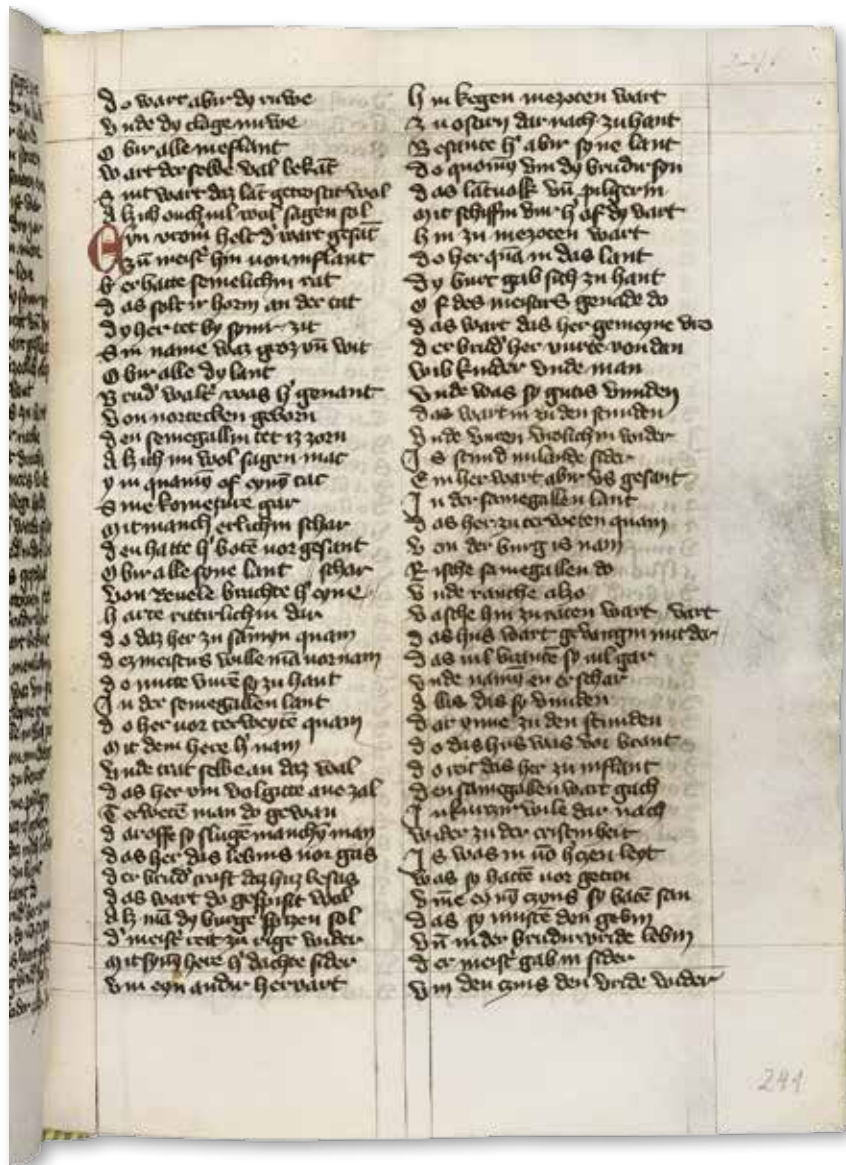 D o wart abir dy ruwe
V nde dy clage nuwe
O bir alle nieflant
W art der selbe val bekāt
S int wart daz lāt getrostit wol
A lz ich ouch uil wol sagen sol
Eyn vrom̄ helt d' wart gesāt
zū meist' hin uon niflant
h er hatte semelichin rat
d as solt ir horin an der tat
dy her tet by synir zit
S in name waz groz vn̄ wit
O bir alle dy lant
B rud' walt' was h' genant
V on nortecken geborn
d en semegallin tet iz zorn
A lz ich nu wol sagen mac
y m quamȳ of eynȳ tac
S ine kometure gar
mit manch erlichin schar
d en hatte h' botē uor gesant
O bir alle syne lant
Von Reuele brachte h' eyne schar
h arte ritterlichin dar
d o daz her zu samȳn quam
d ez meisters wille mā uornam
d o mitte vurē sy zu hant
In der semegallen lant
d o her uor terweytē quam
mit dem here h' nam
vnde trat selbe an daz wal
d as her vm volgitte ane zal
T erwetē man do gewan
d ar offe sy sluge manchȳ man
d as her das lebins uor gas
d er brud' crist daz huz besas
d as wart do gespisit wol
A lz mā dy burge spyzen sol
d' meist' reit zu rige wider
mit synȳ here h' dachte sider
vm eyn andir hervart
h in kegen mezoten wart
z u ostirn dar nach zu hant
B esante h' abir syne lant
d o quomȳ vm dy brudir syn
d as lātuolk vn̄ pilgerin
mit schiffin vur h' of dy vart
h in zu mezoten wart
d o her quā in das lant
dy burc gab sich zu hant
o f des meisters genade do
d as wart das her gemeyne vro
d er brud' her vurte von dan
wib kinder vnde man
vnde was sy gutis vunden
das wart in zu den stunden
v nde vuren vrolich in wider
I s stund unlange sider
E in her wart abir vs gesant
I n der semegallen lant
d as her zu terweten quam
v on der burg is nam
R ische semegallen do
v nde rauche also
v asche hin zu rāten wart
d as hus wart gevangin mit der vart
d as uil brantē sy uil gar
vnde namȳ en er schar
A llis dis sy vunden
d ar ynne zu den stunden
d o das hus was vor brant
d o reit das her zu niflant
d en samegallen wart gach
In kurtzir wile dar nach
wider zu der cristenheit
I s was in vō hczen leyt
was sy hattē uor getan
v m̄e eynȳ czyns sy batē san
d as sy mustē den gebin
vn̄ in der brudir vride lebin
d er meist' gab in sider
v m den czins den vride wider
241